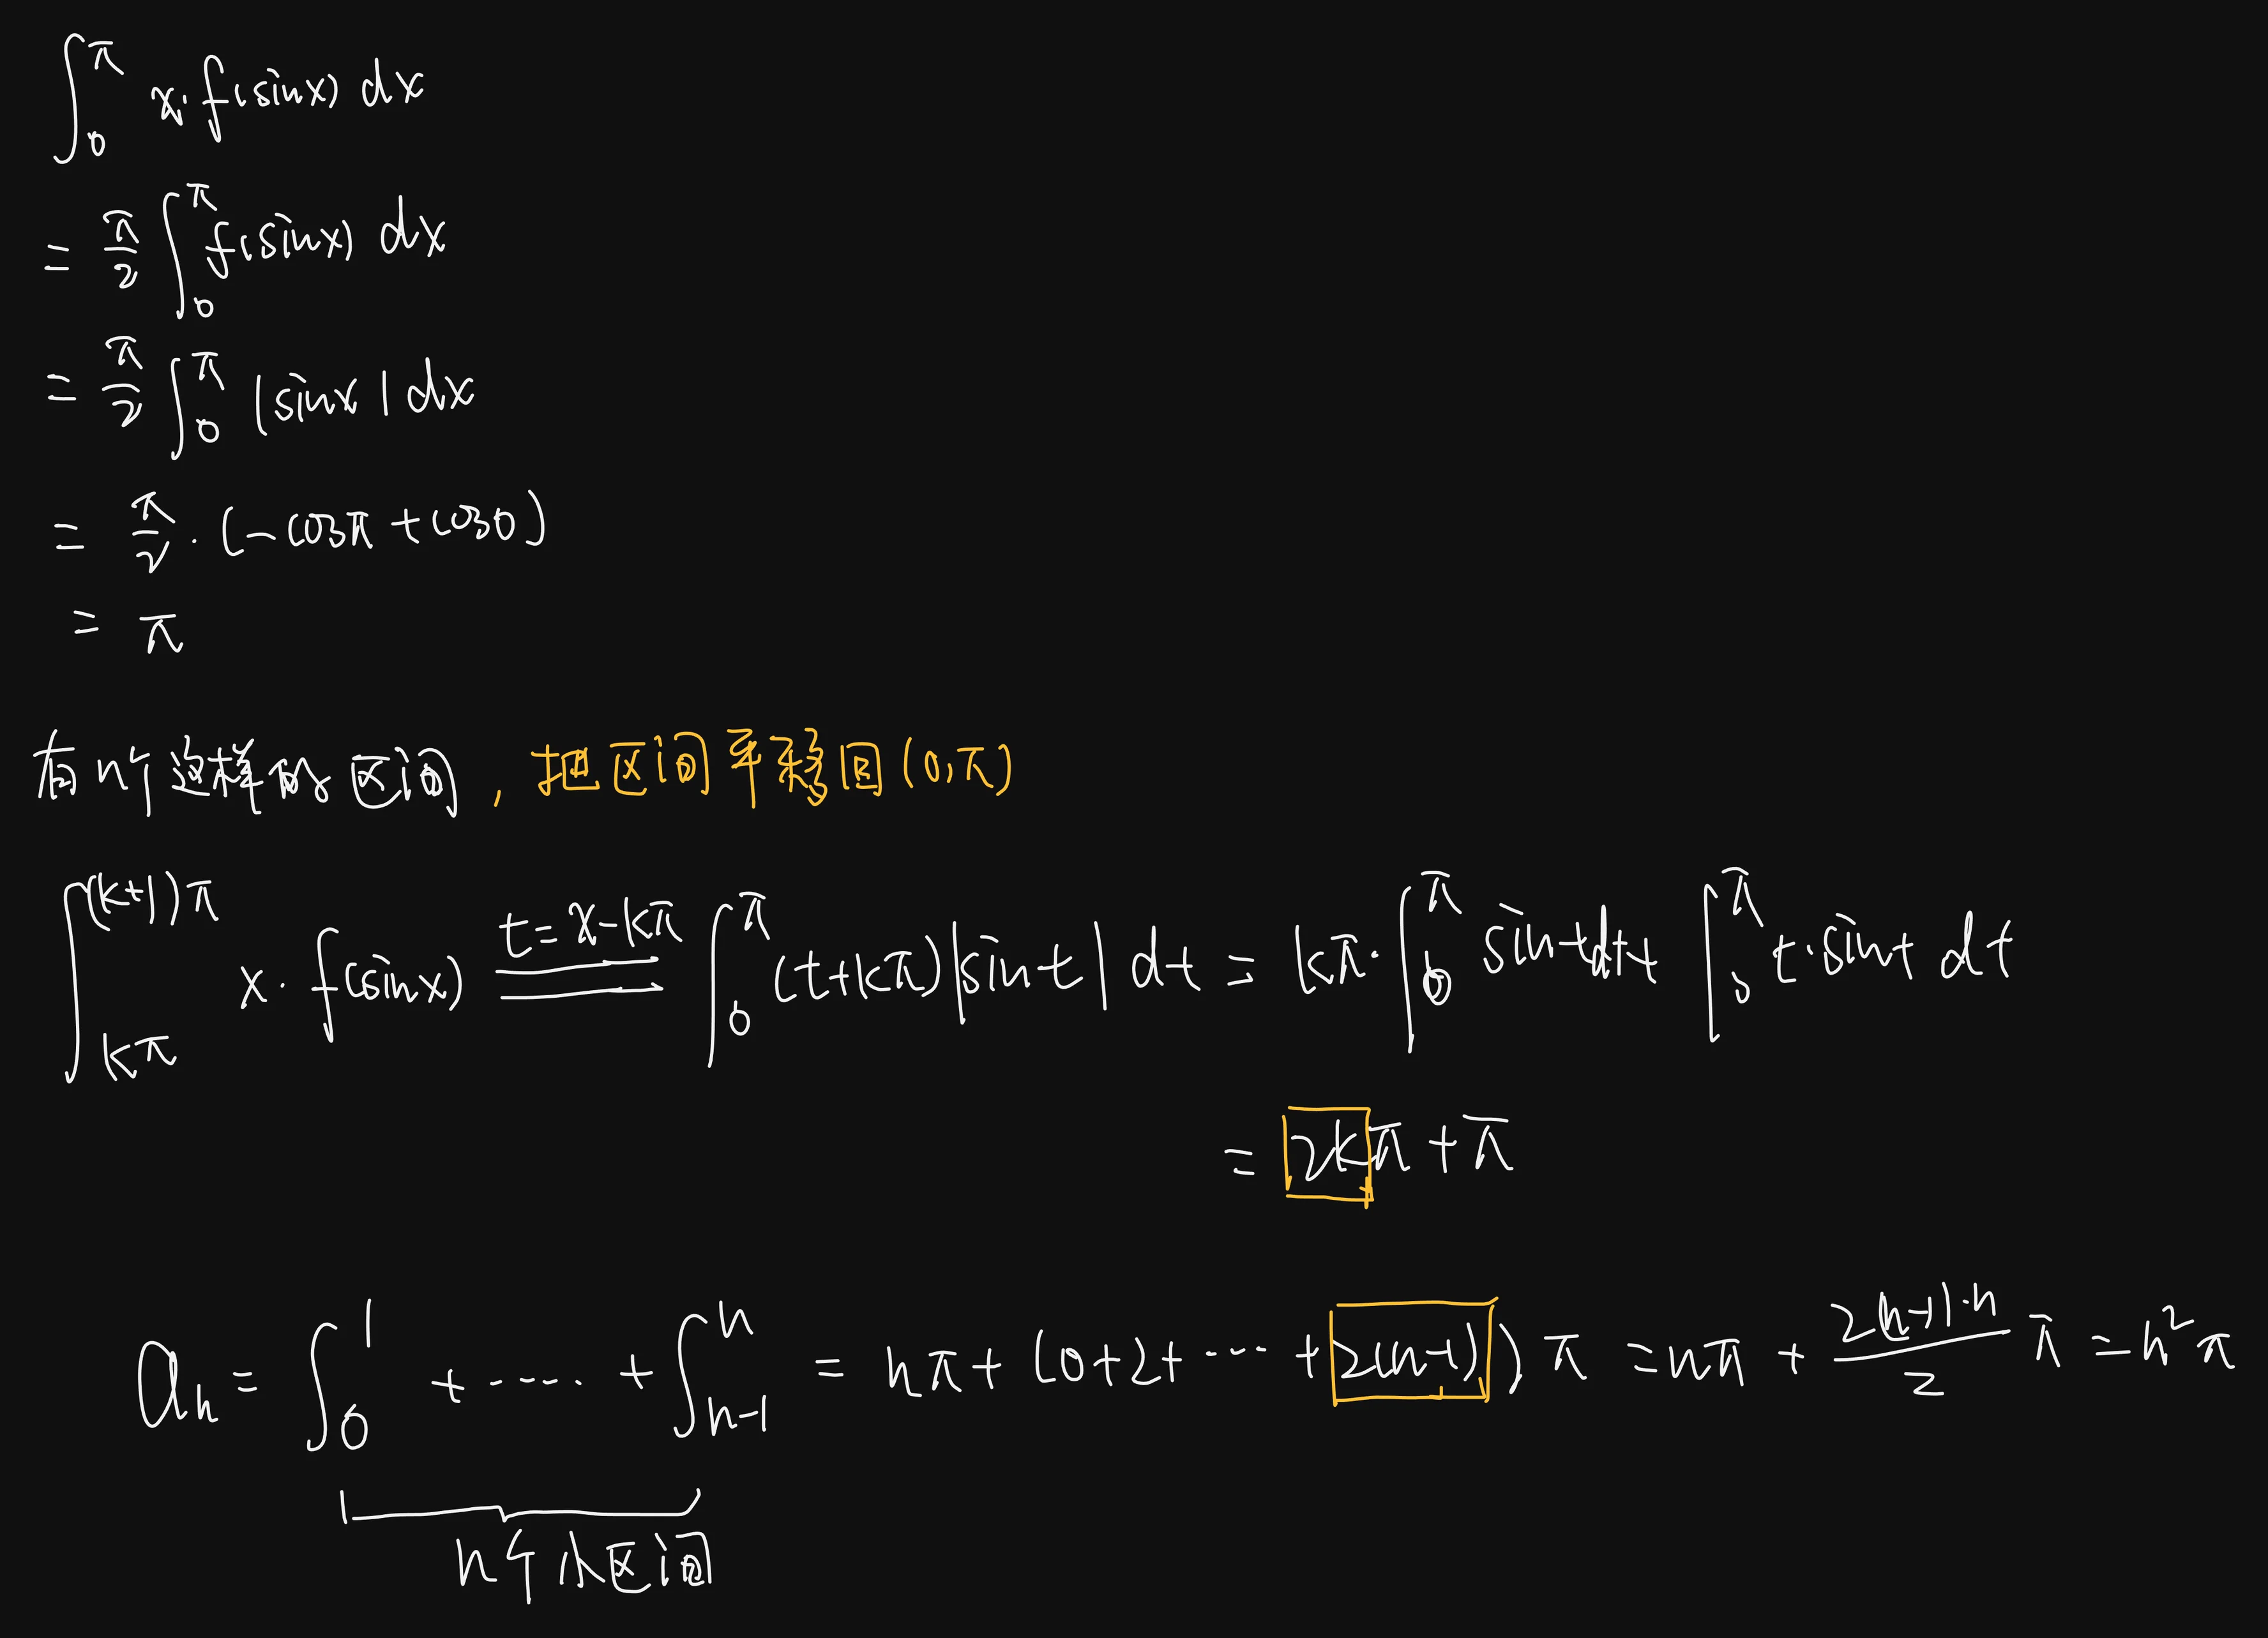 ∫₀^π x·f(sinx) dx
= π/2 ∫₀^π f(sinx) dx
= π/2 ∫₀^π |sinx| dx
= π/2 · (-cosπ + cos0)
= π
有n个这样的区间, 把区间平移回(0,π)
∫_{kπ}^{(k+1)π} x·f(sinx) =(t=x-kπ)= ∫₀^π (t+kπ)|sint| dt = kπ·∫₀^π sint dt + ∫₀^π t·sint dt
= 2kπ + π
a_n = ∫₀^1 + ····· + ∫_{n-1}^n = nπ + (0+2+ ····· + 2(n-1))π = nπ + 2(n-1)·n/2 π = n²π
n个小区间